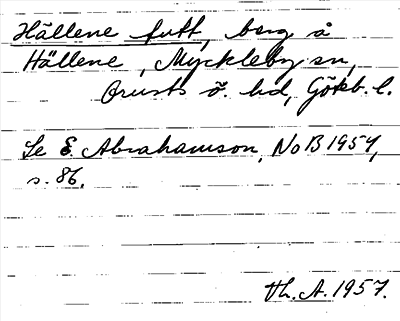 Hällene futt, berg å
Hällene, Myckleby sn,
Orusts ö. hd, Göteb. l.
Se E. Abrahamson, NoB 1954,
s. 86.
Th. A. 1957.